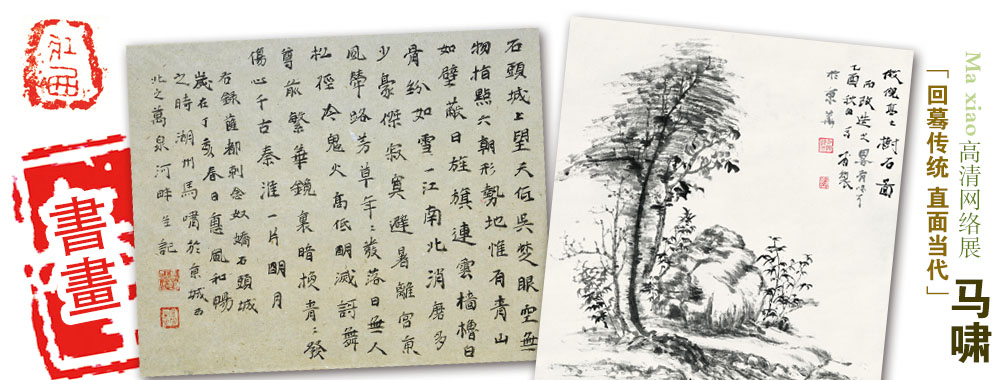 Ma xiao 高清网络展
「回蓦传统 直面当代」
马啸
樹石圖
乙酉秋日
於京華
石頭城上望天低吳楚眼空無
物指點六朝形勢地惟有青山
如壁蔽日旌旗連雲檣櫓白
骨紛如雪一江南北消磨多
少豪傑寂寞避暑離宮東
風輦路芳草年〻發落日無人
松徑冷鬼火高低明滅謌舞
尊前繁華鏡裏暗換青〻髮
傷心千古秦淮一片明月
右錄薩都剌念奴嬌石頭城
歲在丁亥春日惠風和暢
之時湖州馬嘯於京城西
北之萬泉河畔並記
書畫